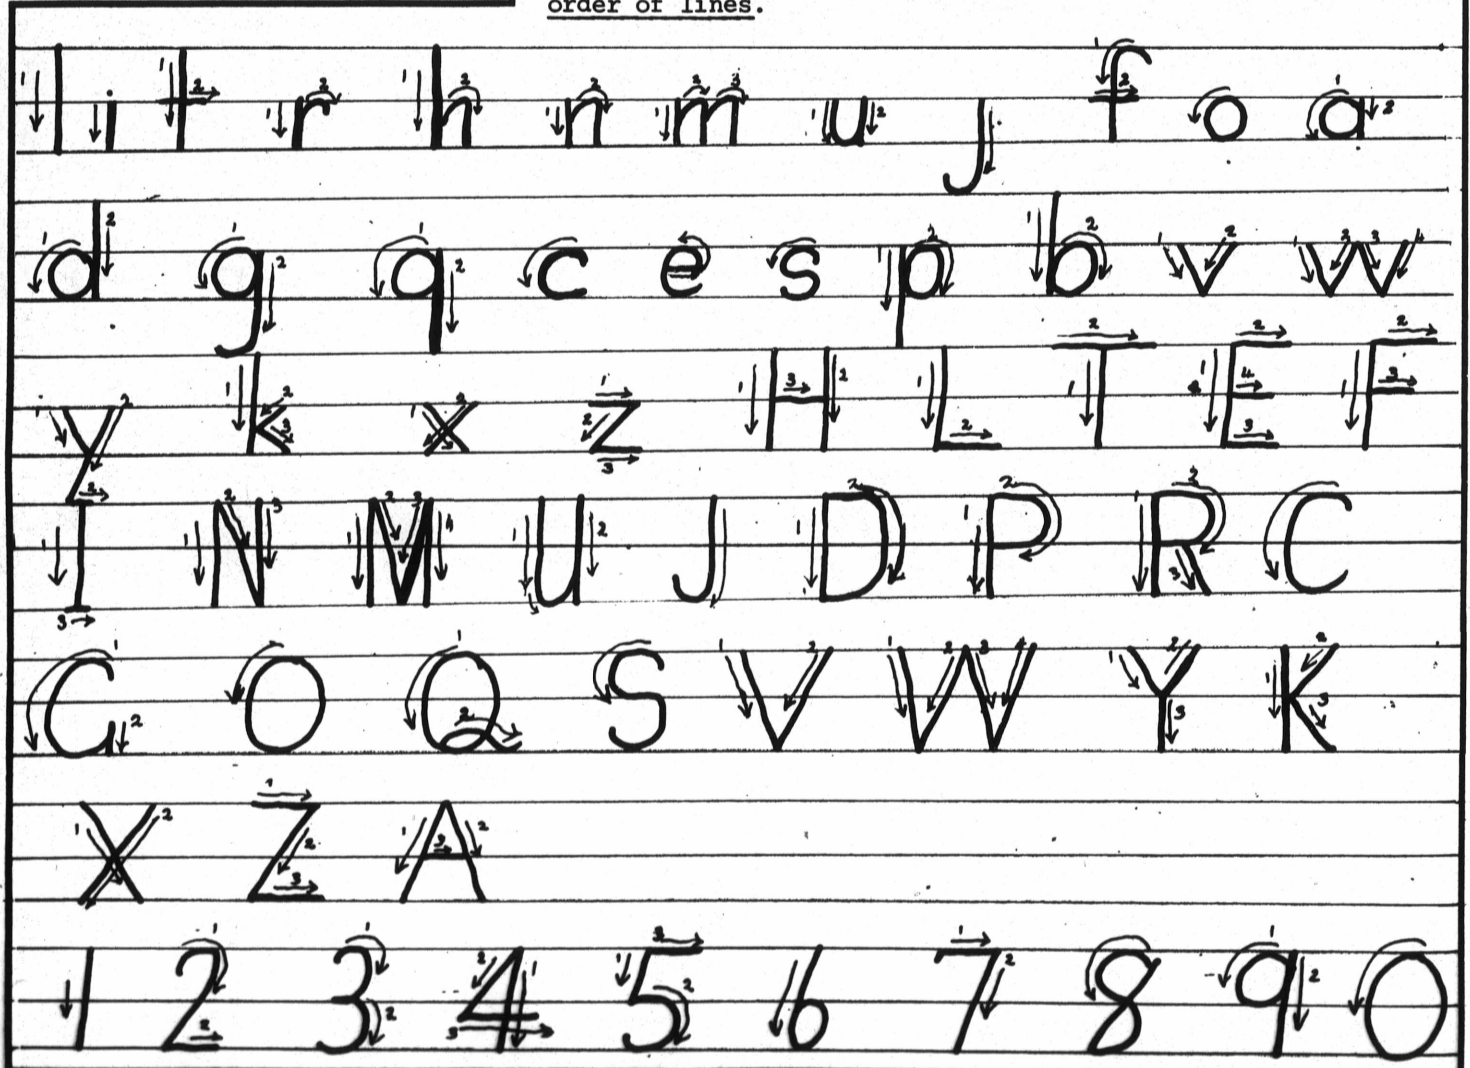 order of lines.
l i t r h n m u j f o a
d g q c e s p b v w
y k x z H L T E F
I N M U J D P R C
G O Q S V W Y K
X Z A
1 2 3 4 5 6 7 8 9 0